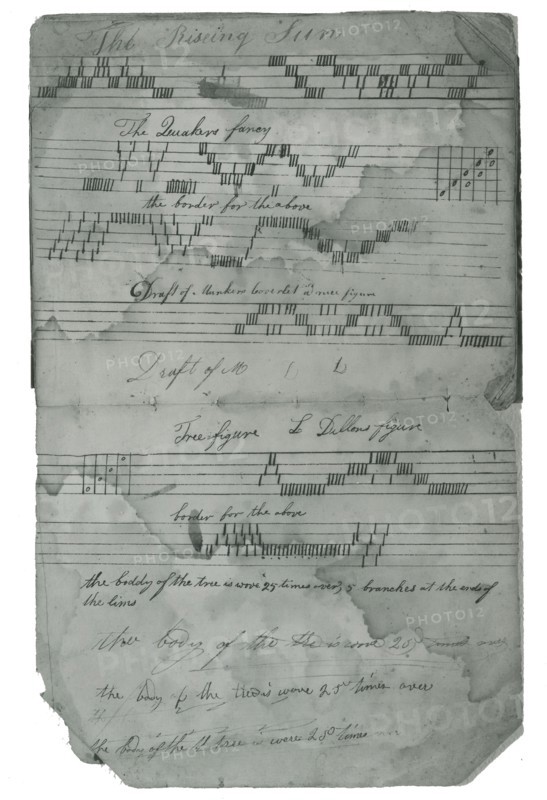 The Riseing Sun
The Quakers fancy
the border for the above
Draft of coverlet tree figure
Draft of M L
Tree figure L Dillons figure
border for the above
the boddy of the tree is wove 25 times over, 5 branches at the ends of
the lims
thee body of the tre is wove 25 times over
the body of the tree is wove 25 times over
the body of the tree is wove 250 times
PHOTO12